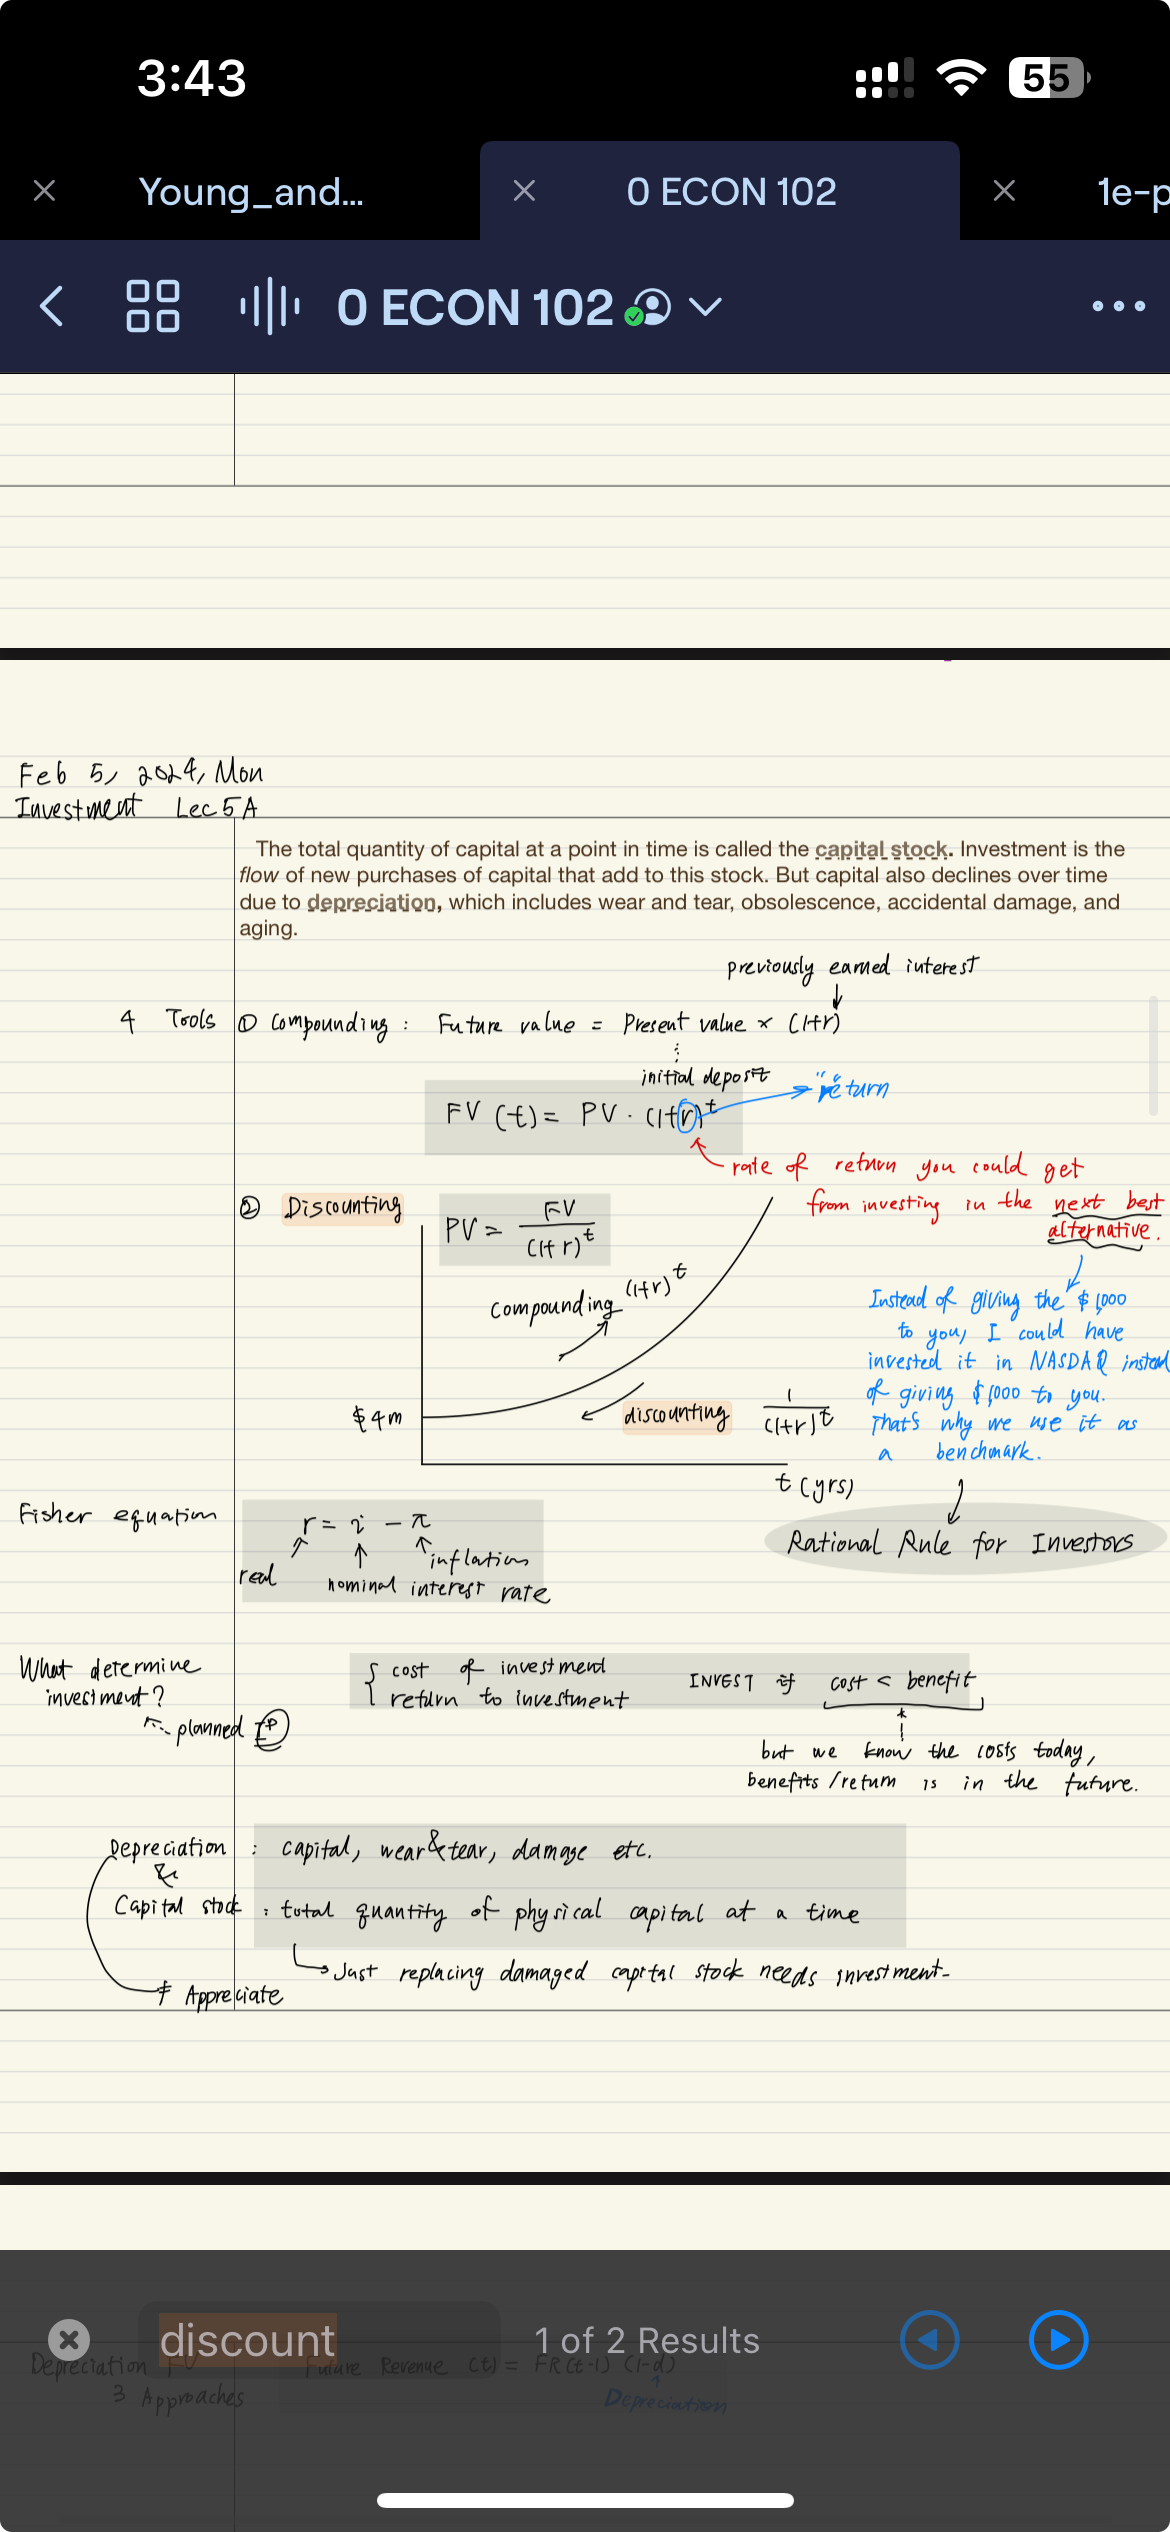 3:43
55
Young_and...
0 ECON 102
1e-p
0 ECON 102
Feb 5, 2024, Mon
Investment Lec 5A
The total quantity of capital at a point in time is called the capital stock. Investment is the
flow of new purchases of capital that add to this stock. But capital also declines over time
due to depreciation, which includes wear and tear, obsolescence, accidental damage, and
aging.
previously earned interest
4 Tools ① Compounding : Future value = Present value × (1+r)
initial deposit
FV (t) = PV · (1+r)^t
"return"
rate of return you could get
from investing in the next best
alternative.
② Discounting
PV = FV / (1+r)^t
compounding (1+r)^t
Instead of giving the $1,000
to you, I could have
invested it in NASDAQ instead
of giving $1,000 to you.
That's why we use it as
a benchmark.
$4m
discounting 1 / (1+r)^t
t (yrs)
Rational Rule for Investors
Fisher equation
r = i − π
real
inflation
nominal interest rate
What determine
investment?
planned I^P
cost of investment
return to investment
INVEST if cost < benefit
but we know the costs today,
benefits/return is in the future.
Depreciation : capital, wear&tear, damage etc.
&
Capital stock : total quantity of physical capital at a time
Just replacing damaged capital stock needs investment.
≠ Appreciate
discount
1 of 2 Results
Depreciation FV
Future Revenue (t) = FR(t-1) (1-d)
3 Approaches
Depreciation